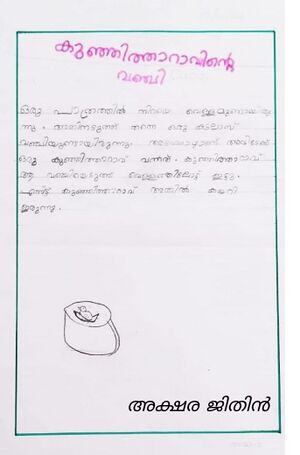 കുഞ്ഞിത്താറാവിന്റെ
വഞ്ചി
ഒരു പാത്രത്തിൽ നിറയെ വെള്ളമുണ്ടായിരു
ന്നു. അതിനടുത്ത് തന്നെ ഒരു കടലാസ്
വഞ്ചിയുണ്ടായിരുന്നു. അപ്പോഴാണ് അവിടേക്ക്
ഒരു കുഞ്ഞിത്താറാവ് വന്നത്. കുഞ്ഞിത്താറാവ്
ആ വഞ്ചിയെടുത്ത് വെള്ളത്തിലോട്ട് ഇട്ടു.
എന്നിട്ട് കുഞ്ഞിത്താറാവ് അതിൽ കയറി
ഇരുന്നു.
അക്ഷര ജിതിൻ